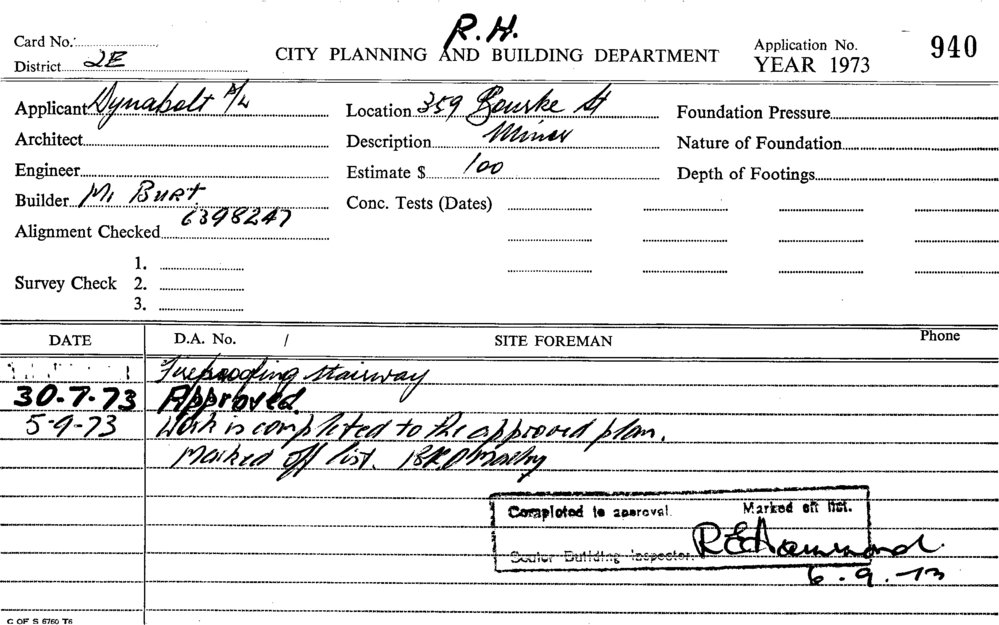 R.H.
Card No.
CITY PLANNING AND BUILDING DEPARTMENT
Application No. 940
District 2E
YEAR 1973
Applicant Dynabolt P/L
Location 359 Bourke St
Foundation Pressure
Architect
Description Minor
Nature of Foundation
Engineer
Estimate $ 100
Depth of Footings
Builder Mr Burt
Conc. Tests (Dates)
6398247
Alignment Checked
Survey Check
1.
2.
3.
DATE D.A. No. / SITE FOREMAN Phone
Fireproofing stairway
30-7-73 Approved.
5-9-73 Work is completed to the approved plan.
Marked off list.
Completed to approval. Marked off list.
Senior Building Inspector. R E Hammond.
6.9.73
C OF S 6760 T6